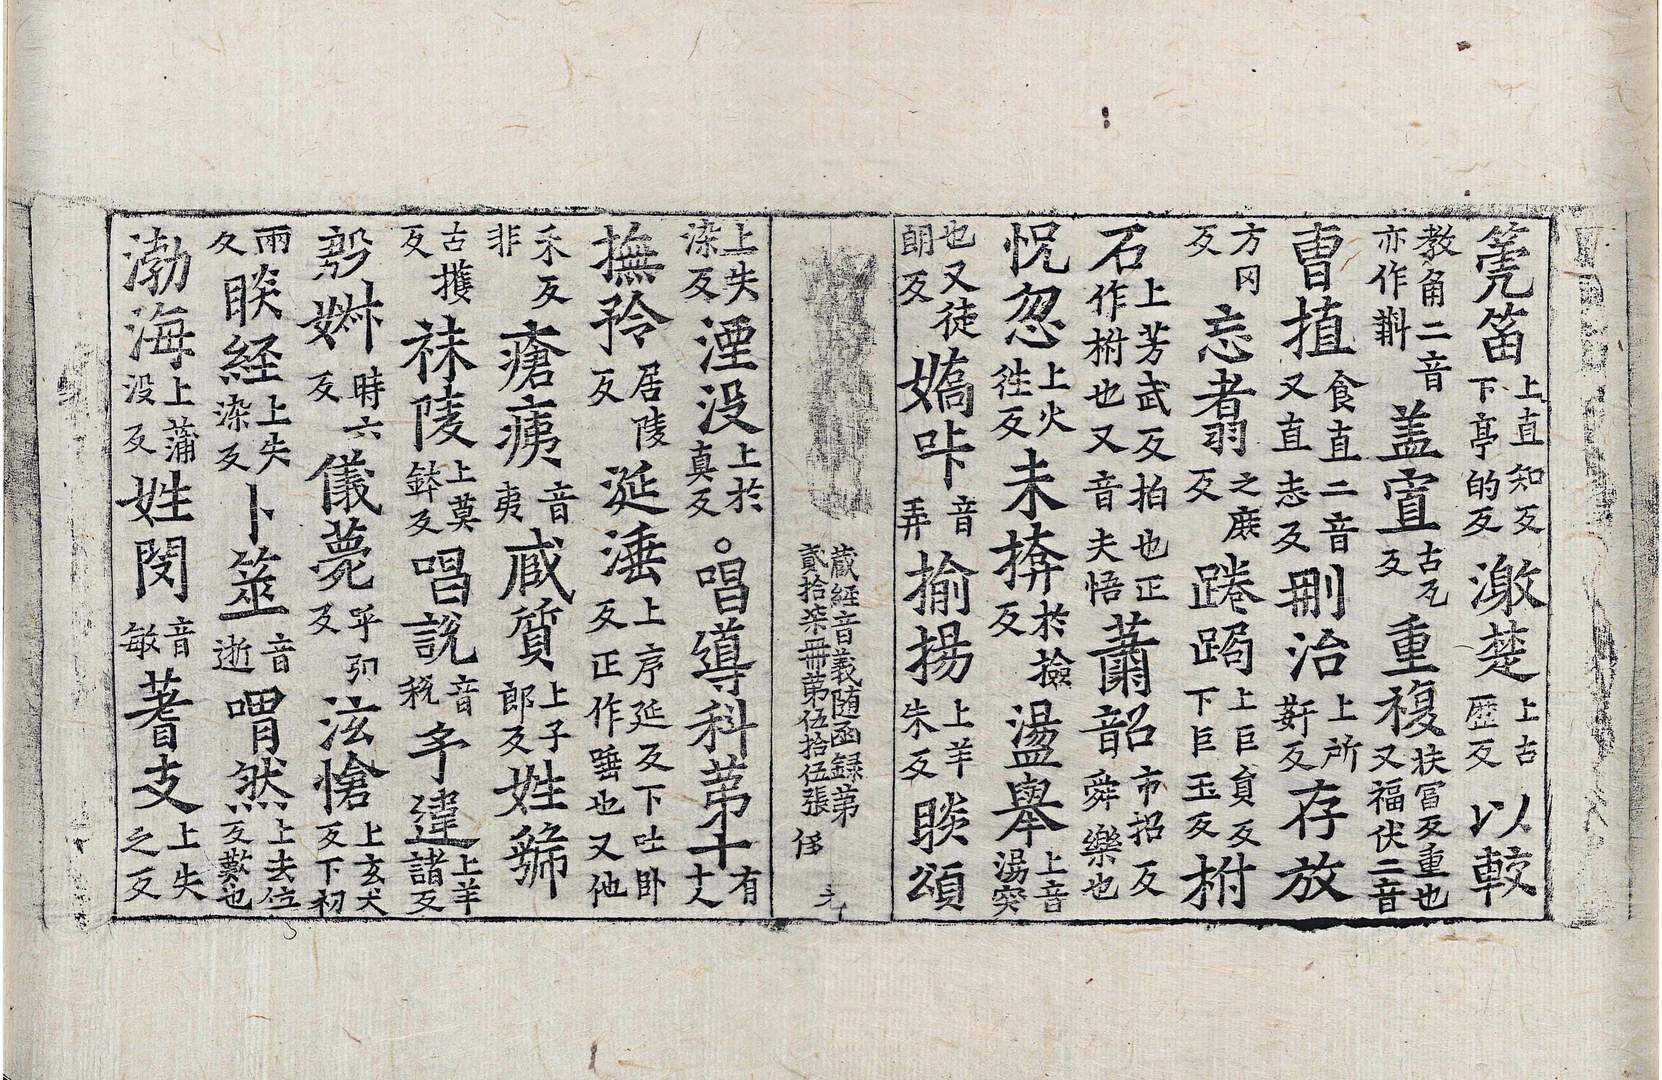 箎笛上直知反下亭的反激楚上古歴反以較
教角二音亦作斠盖寊古瓦反重複扶冨反重也又福伏二音
曺植食直二音又直志反刪治上所姧反存放
方冈反忘翥之庶反踡跼上巨員反下巨玉反柎
石上芳武反拍也正作柎也又音夫悟蕭韶市招反舜樂也
怳忽上火往反未揜於撿反盪舉上音湯突
也又徒朗反嬌咔音弄揄揚上羊朱反睒頌
藏經音義随函録第
貳拾柒冊第伍拾伍張 侈 元
上失染反湮没上於真反。唱導科第十有十人
撫矜居陵反涎涶上序延反下吐卧反正作唾也又他
禾反非瘡痍音夷臧質上子郎反姓號
古攫反秣陵上莫鉢反唱說音税予違上羊諸反
時六反儀薨乎肱反泫愴上玄犬反下初
睒経上失染反卜筮音逝喟然上去位反歎也
渤海上蒲没反姓閔音敏蓍支上失之反